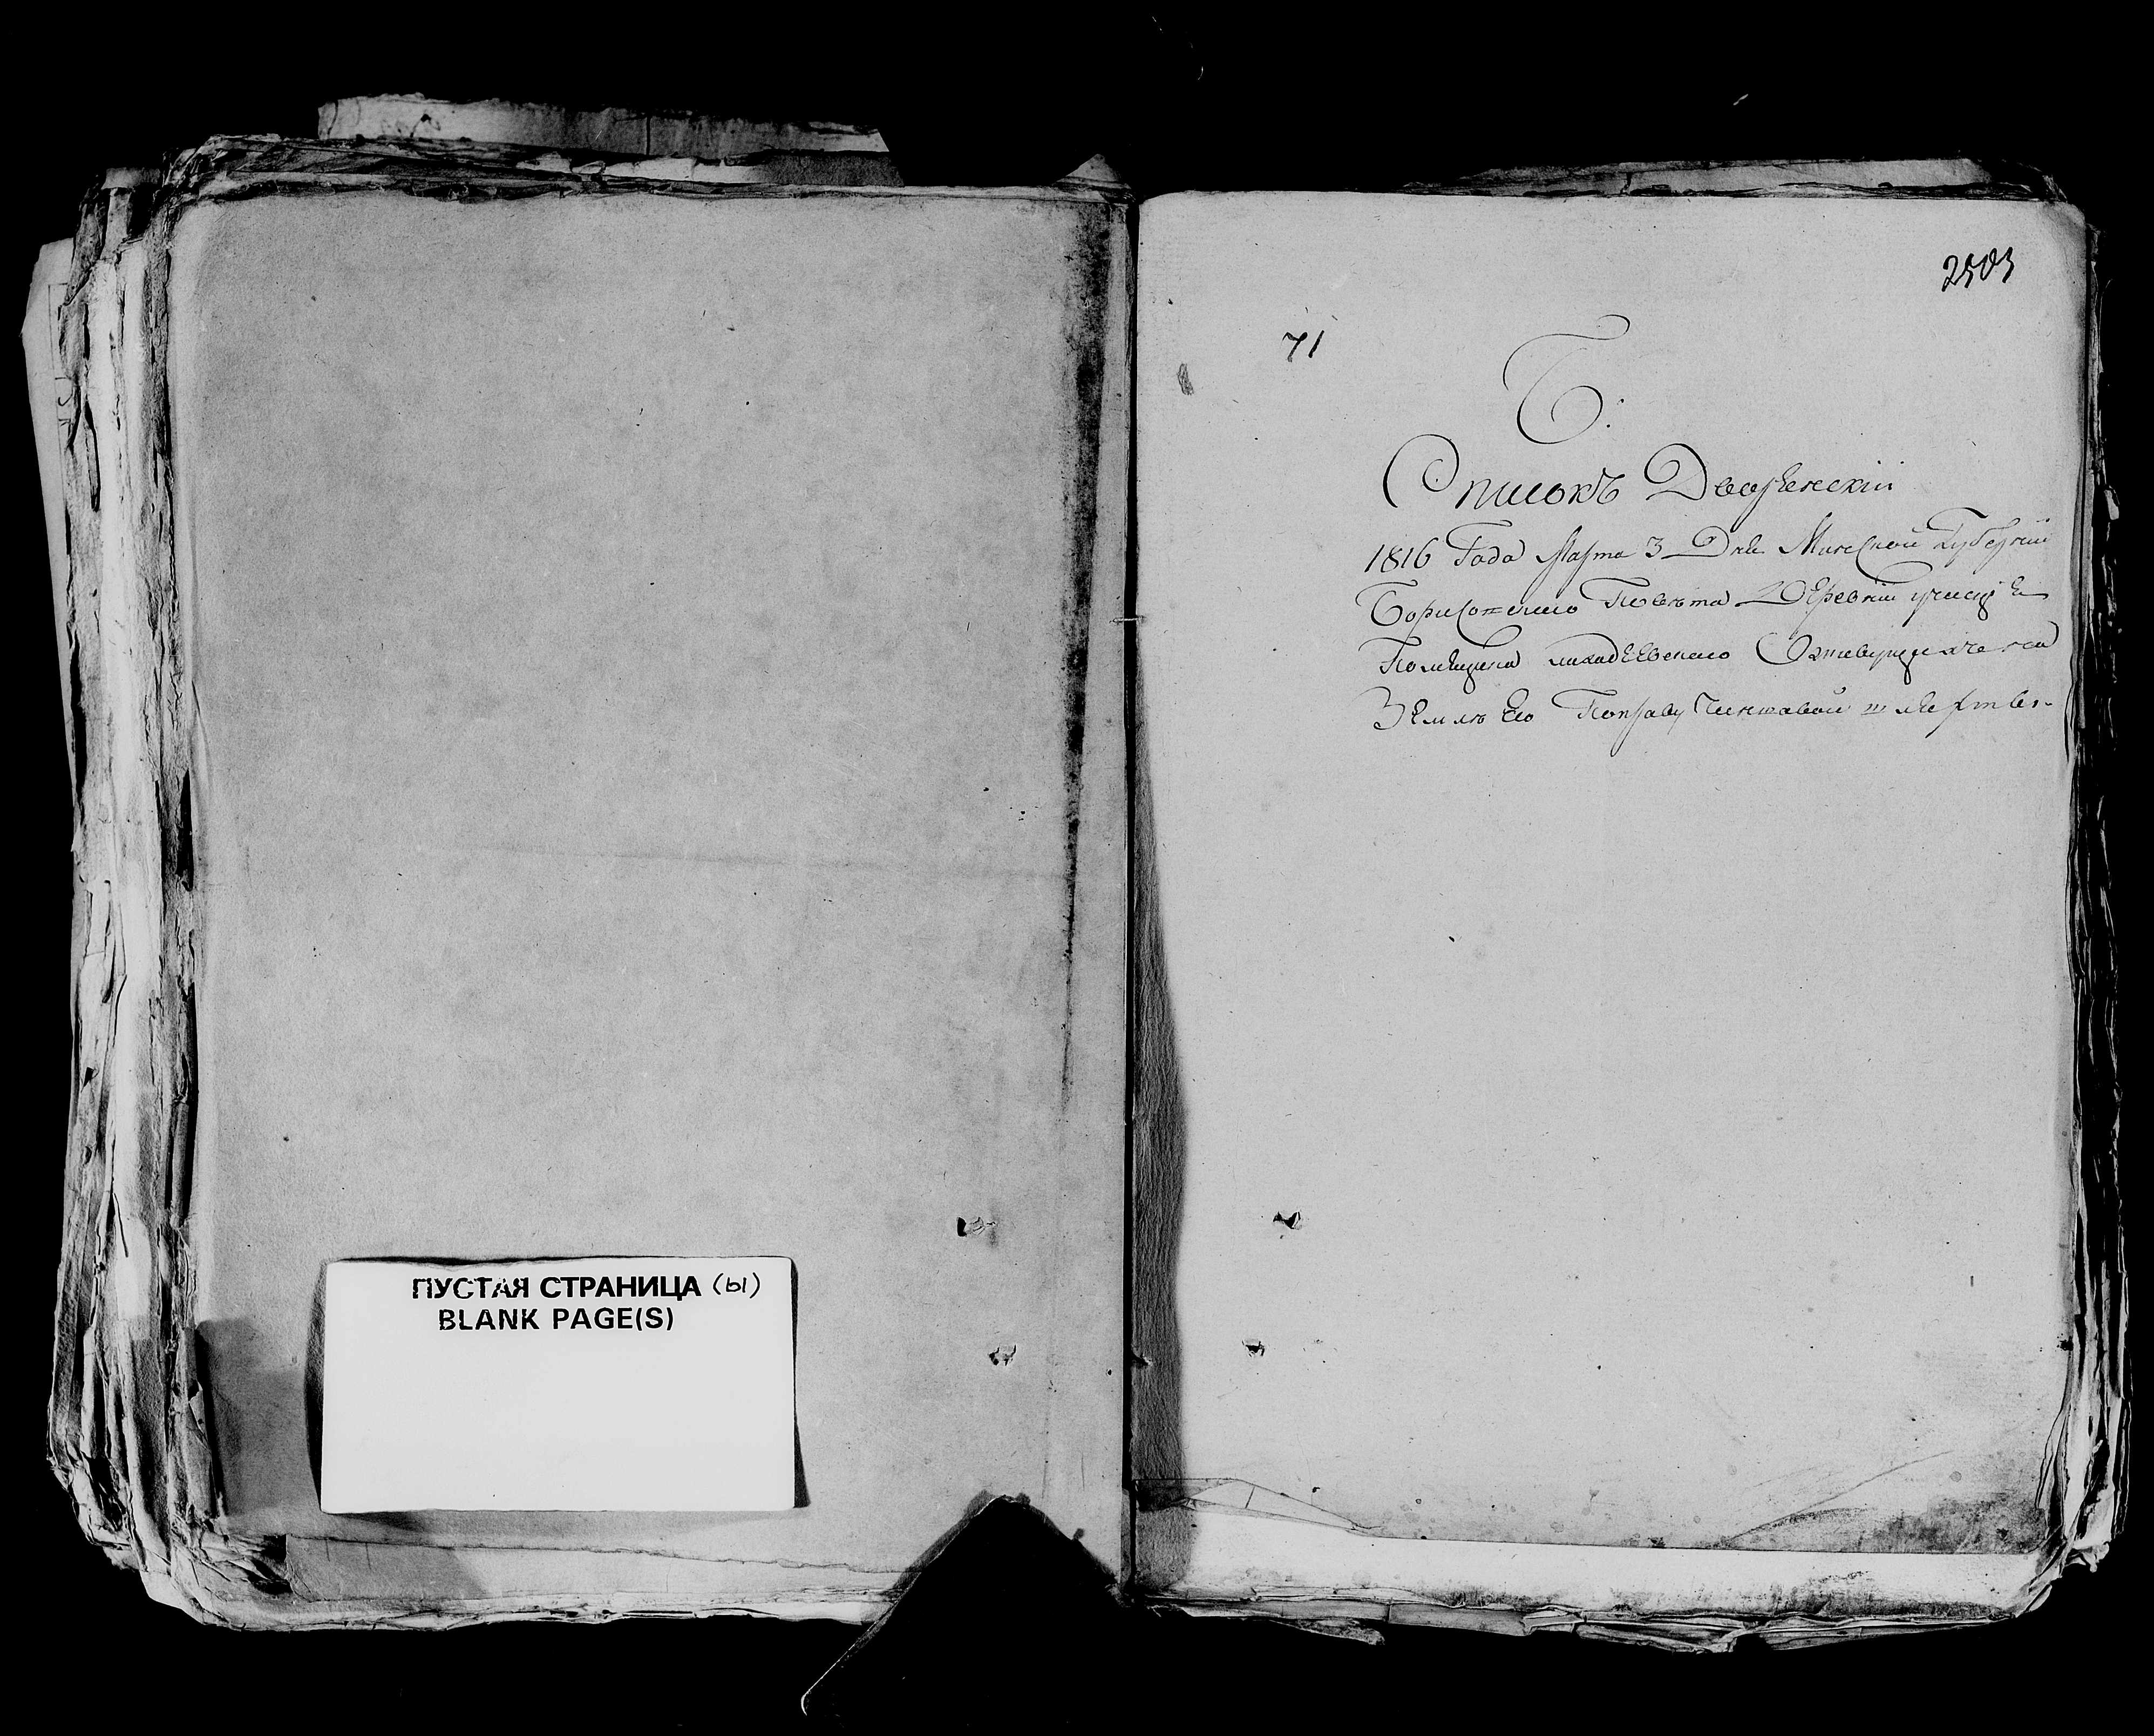 ПУСТАЯ СТРАНИЦА (ы)
BLANK PAGE(S)
2503
71
Б:
Списокъ Дворенскiи
1816 Года Марта 3 Дня Минской Губернiи
Борисовского Повѣта Деревни
Помещика
Землѣ Его Поправу Чиншавои